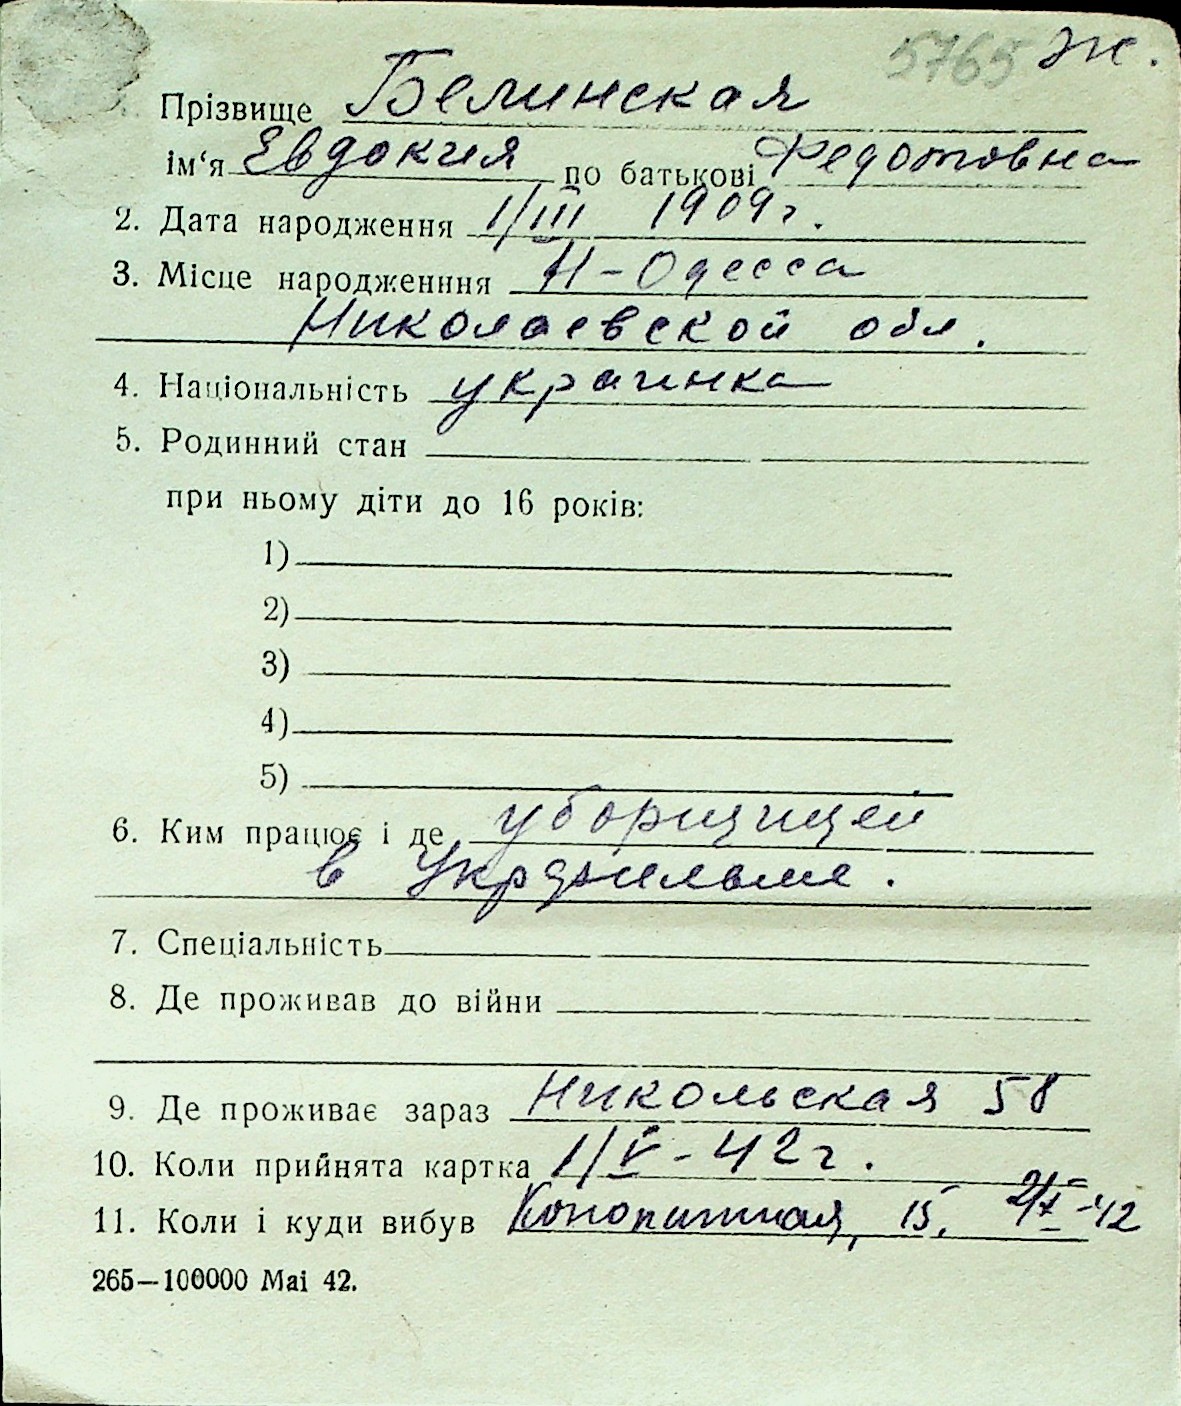 5765 Ж.
Прізвище Белинская
ім‘я Евдокия по батькові Федотовна
2. Дата народження 1/III 1909 г.
3. Місце народженння Н-Одесса
Николаевской обл.
4. Національність украинка
5. Родинний стан
при ньому діти до 16 років:
1)
2)
3)
4)
5)
6. Ким працює і де уборщицей
в Укрфильме.
7. Спеціальність
8. Де проживав до війни
9. Де проживає зараз Никольская 58
10. Коли прийнята картка 1/V-42 г.
11. Коли і куди вибув 15. -42
265—100000 Mai 42.